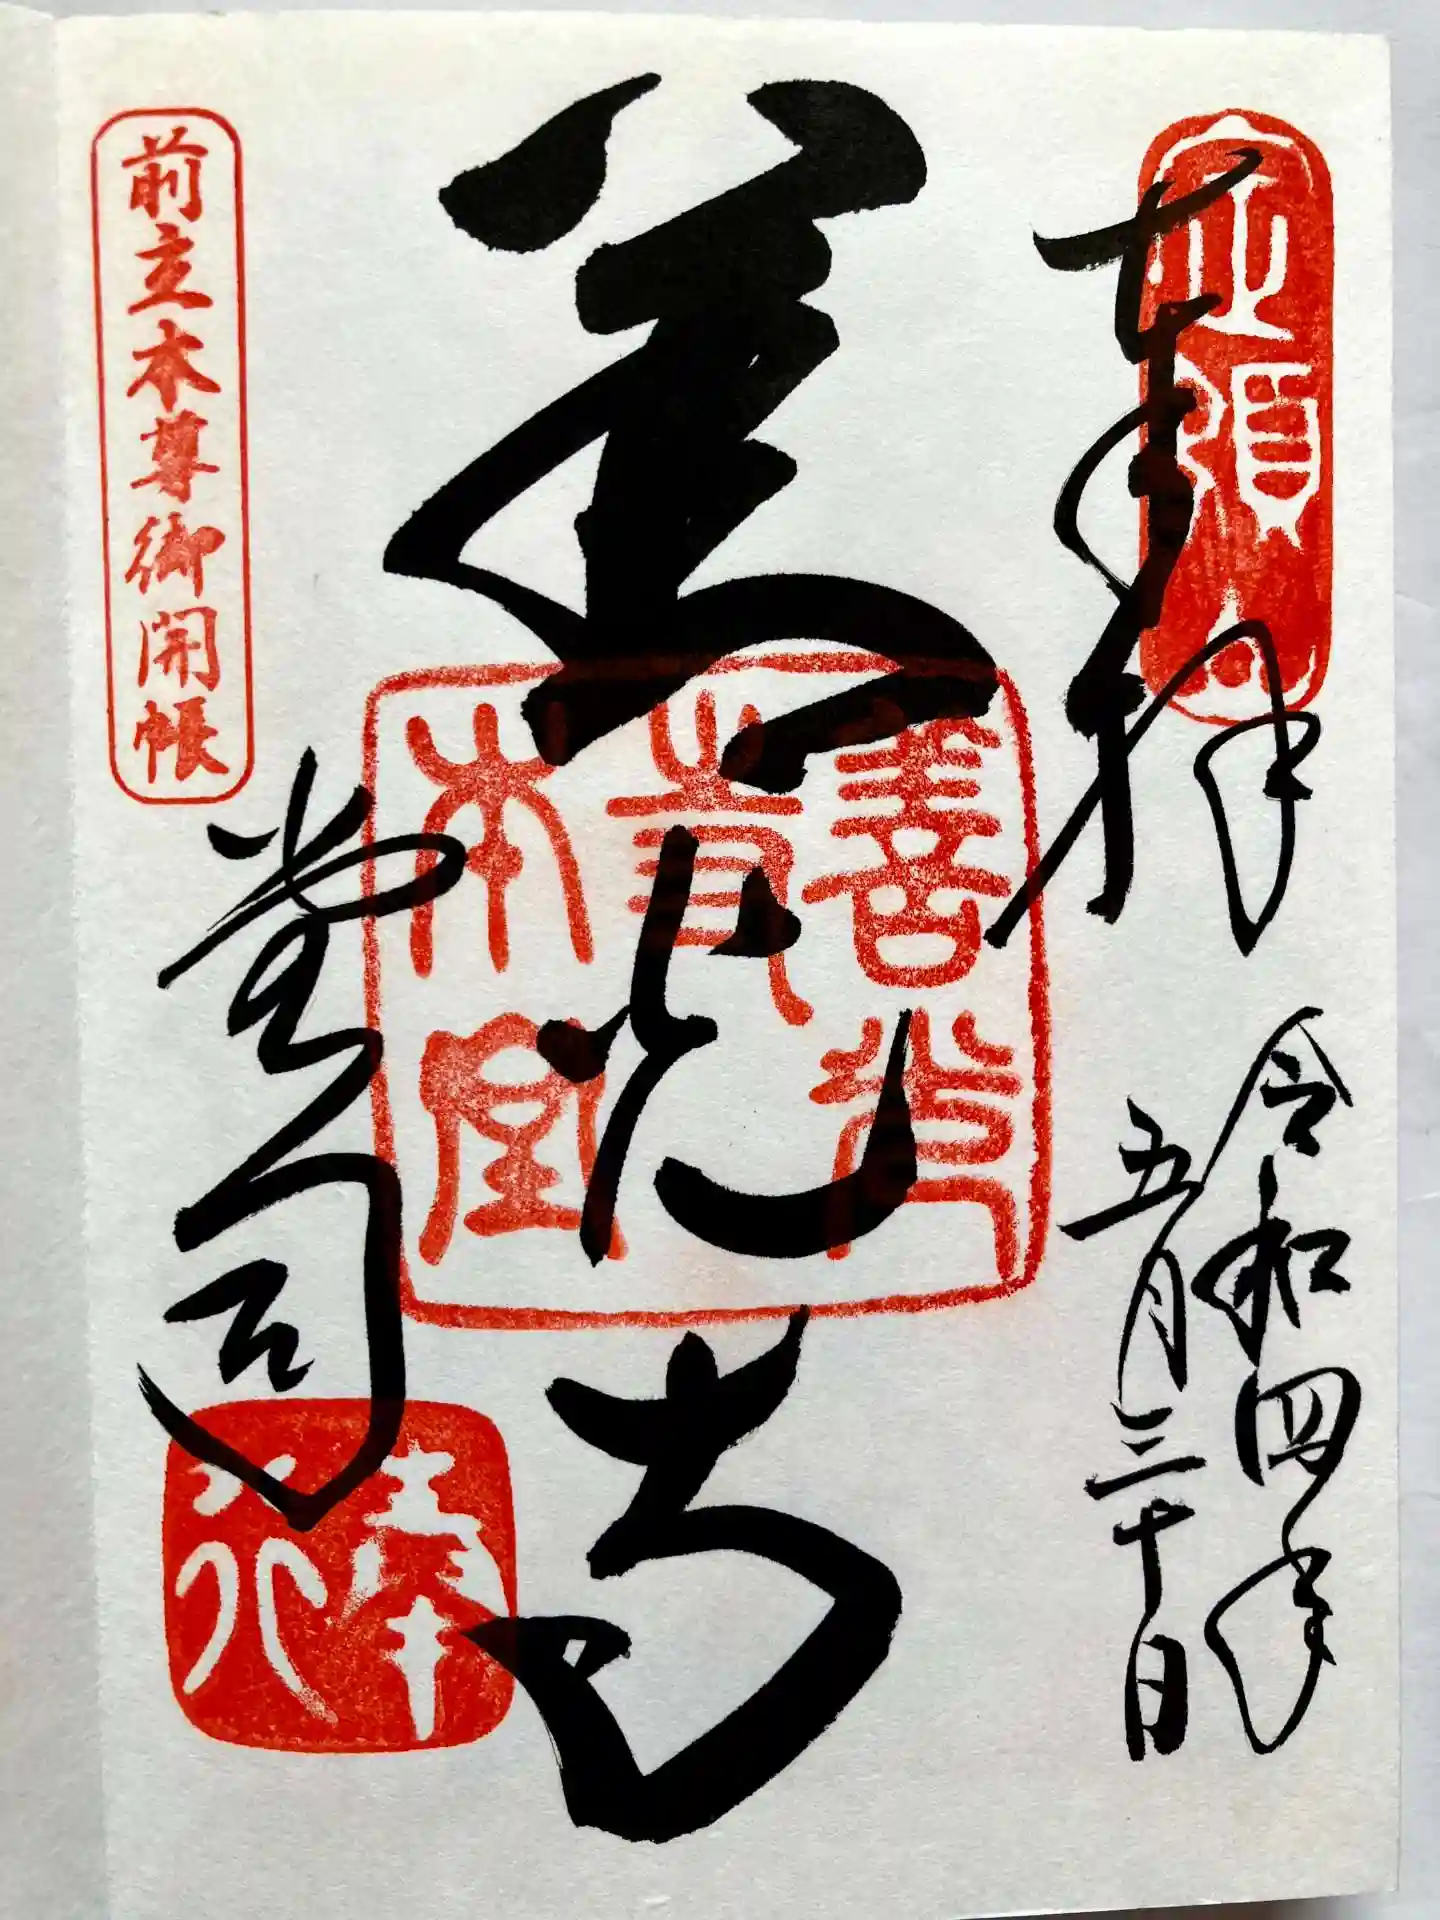 奉拝
令和四年
五月三十日
善光寺
善光寺本堂
堂司
奉行
前立本尊御開帳